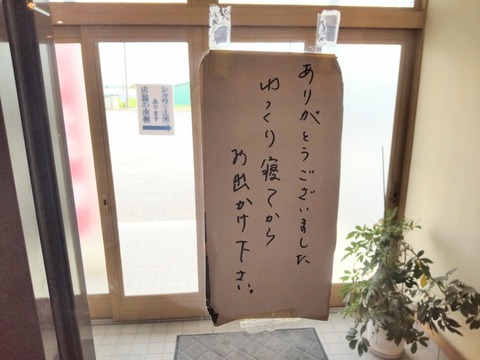 ありがとうございました
ゆっくり寝てから
お出かけ下さい。
シャワー室
あります
店舗の南側